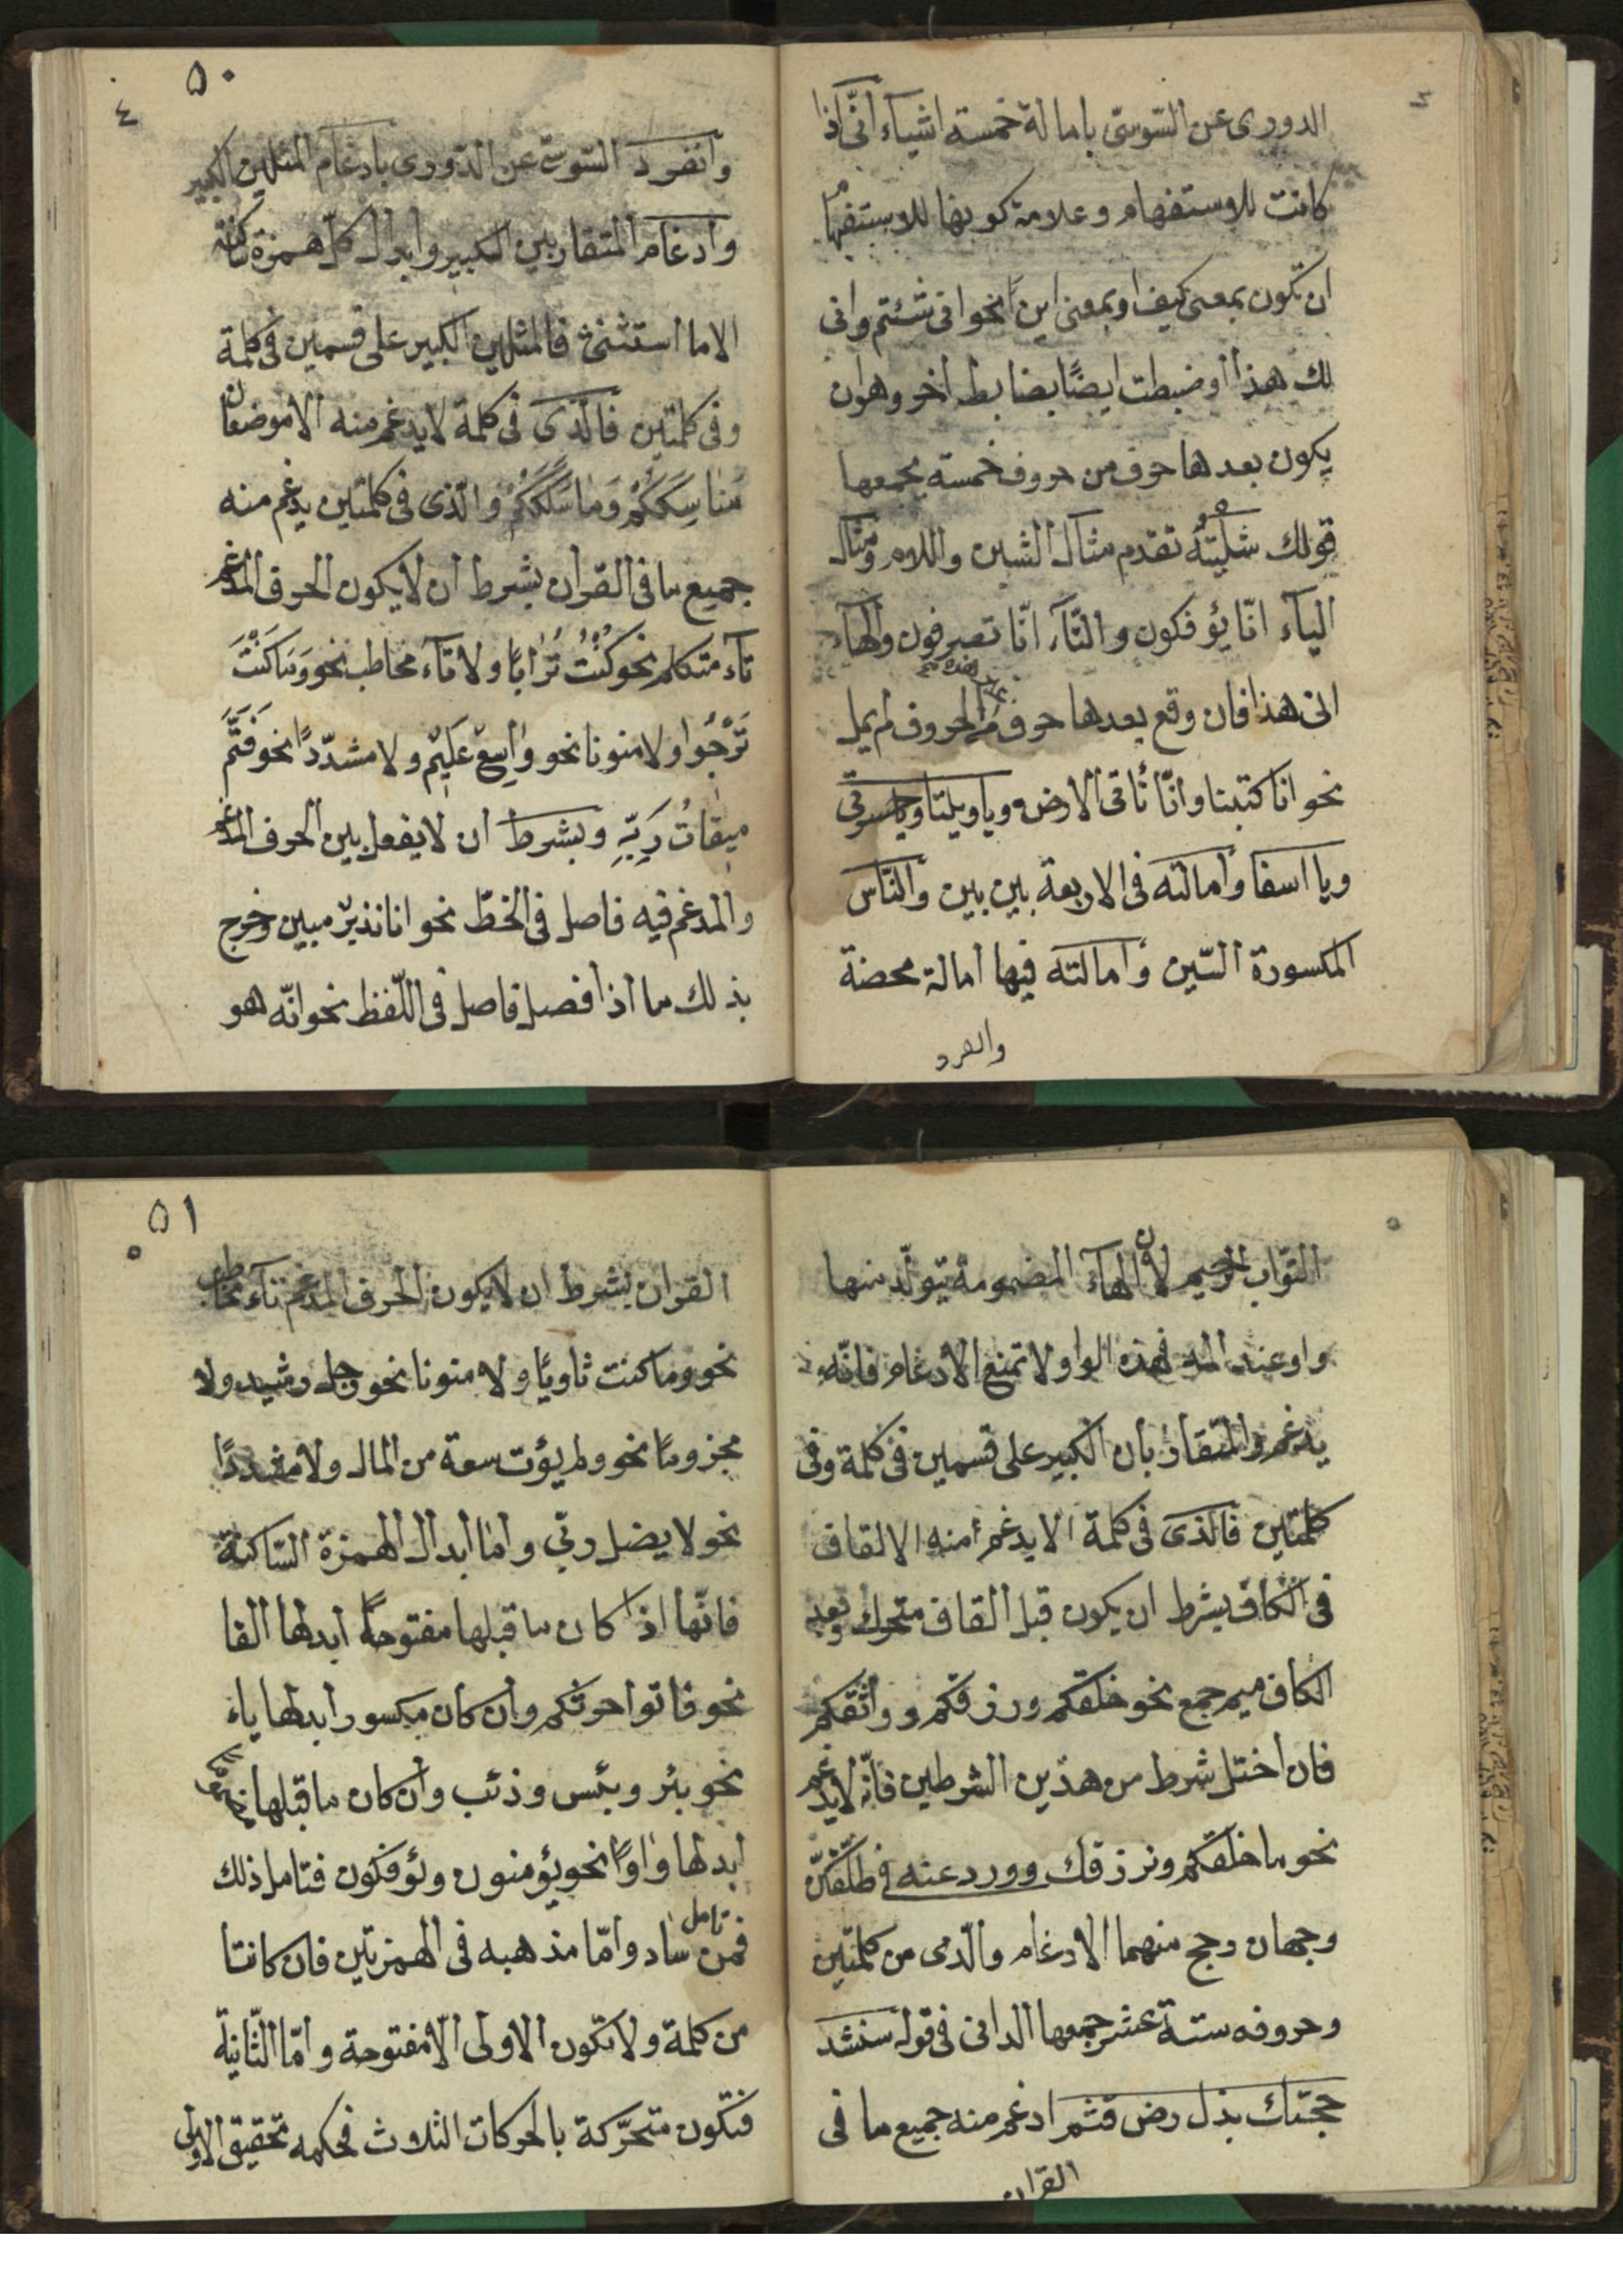 الدورى عن السّوسىّ بامالة خمسة اشياء أنّى اذا
كانت للاستفهام وعلامة كونها للاستفهام
ان تكون بمعنى كيف او بمعنى اين نحو انى شئتم وانى
لك هذا او ضبطت ايضًا بضابط اخر وهو ان
يكون بعدها حرف من حروف خمسة يجمعها
قولك شليته تقدم مثال الشين واللام ومثال
الياء انّا يؤفكون والتّاء انّا تصرفون والهاء
انى هذا فان وقع بعدها حرف من الحروف لم يمل
نحو انا كتبنا وانّا نأتى الارض وياويلتا وياحسرتى
ويا اسفا وامالته فى الاربعة بين بين والنّاس
المكسورة السّين وامالته فيها امالة محضة
وانفرد
٥٠
٤
وانفرد السّوسىّ عن الدّورى بادغام المثلين الكبير
وادغام المتقاربين الكبير وابدال كلّ همزة ساكنة
الا ما استثنى فالمثلين الكبير على قسمين فى كلمة
وفى كلمتين فالّذى فى كلمة لا يدغم منه الا موضعان
مَنَاسِكَكُمْ وَمَا سَلَكَكُمْ والّذى فى كلمتين يدغم منه
جميع ما فى القرآن بشرط ان لا يكون الحرف المدغم
تاء متكلم نحو كُنْتُ تُرَابًا ولا تاء مخاطب نحو وَمَا كُنْتَ
تَرْجُوا ولا منونا نحو وَاسِعٌ عَلِيمٌ ولا مشدّدًا نحو فَتَمَّ
مِيقَاتُ رَبِّهِ وبشرط ان لا يفصل بين الحرف المدغم
والمدغم فيه فاصل فى الخطّ نحو انا نذير مبين وخرج
بذلك ما اذا فصل فاصل فى اللّفظ نحو انّه هو
٥
التّواب الرحيم لان الهاء المضمومة يتولّد منها
واو عند المد فهذه الواو لا تمنع الادغام فانّه
يدغم والمتقاربان الكبير على قسمين فى كلمة وفى
كلمتين فالّذى فى كلمة الا يدغم منه الا القاف
فى الكاف بشرط ان يكون قبل القاف متحرك وبعد
الكاف ميم جمع نحو خلقكم ورزقكم وواثقكم
فان اختل شرط من هذين الشرطين فانّه لا يدغم
نحو ما خلقكم ونرزقك وورد عنه فى طلّقكنّ
وجهان رجح منهما الادغام والّذى من كلمتين
وحروفه ستة عشر جمعها الدانى فى قوله سنشد
حجتك بذل رض قثم ادغم منه جميع ما فى
القران
٥١
٥
القران بشرط ان لا يكون الحرف المدغم تاء مخاطب
نحو وما كنت ثاويًا ولا منونا نحو رجل رشيد ولا
مجزومًا نحو ولم يؤت سعة من المال ولا مشددًا
نحو لا يضل ربّى وامّا ابدال الهمزة السّاكنة
فانّها اذا كان ما قبلها مفتوحاً ابدلها الفا
نحو فاتوا حرثكم وان كان مكسورا ابدلها ياء
نحو بئر وبئس وذئب وان كان ما قبلها مضموما
ابدلها واوًا نحو يؤمنون ويؤفكون فتامل ذلك
فمن تامل ساد وامّا مذهبه فى الهمزتين فان كانتا
من كلمة ولا تكون الاولى الّا مفتوحة وامّا الثّانية
فتكون متحرّكة بالحركات الثلاث فحكمه تحقيق الاولى